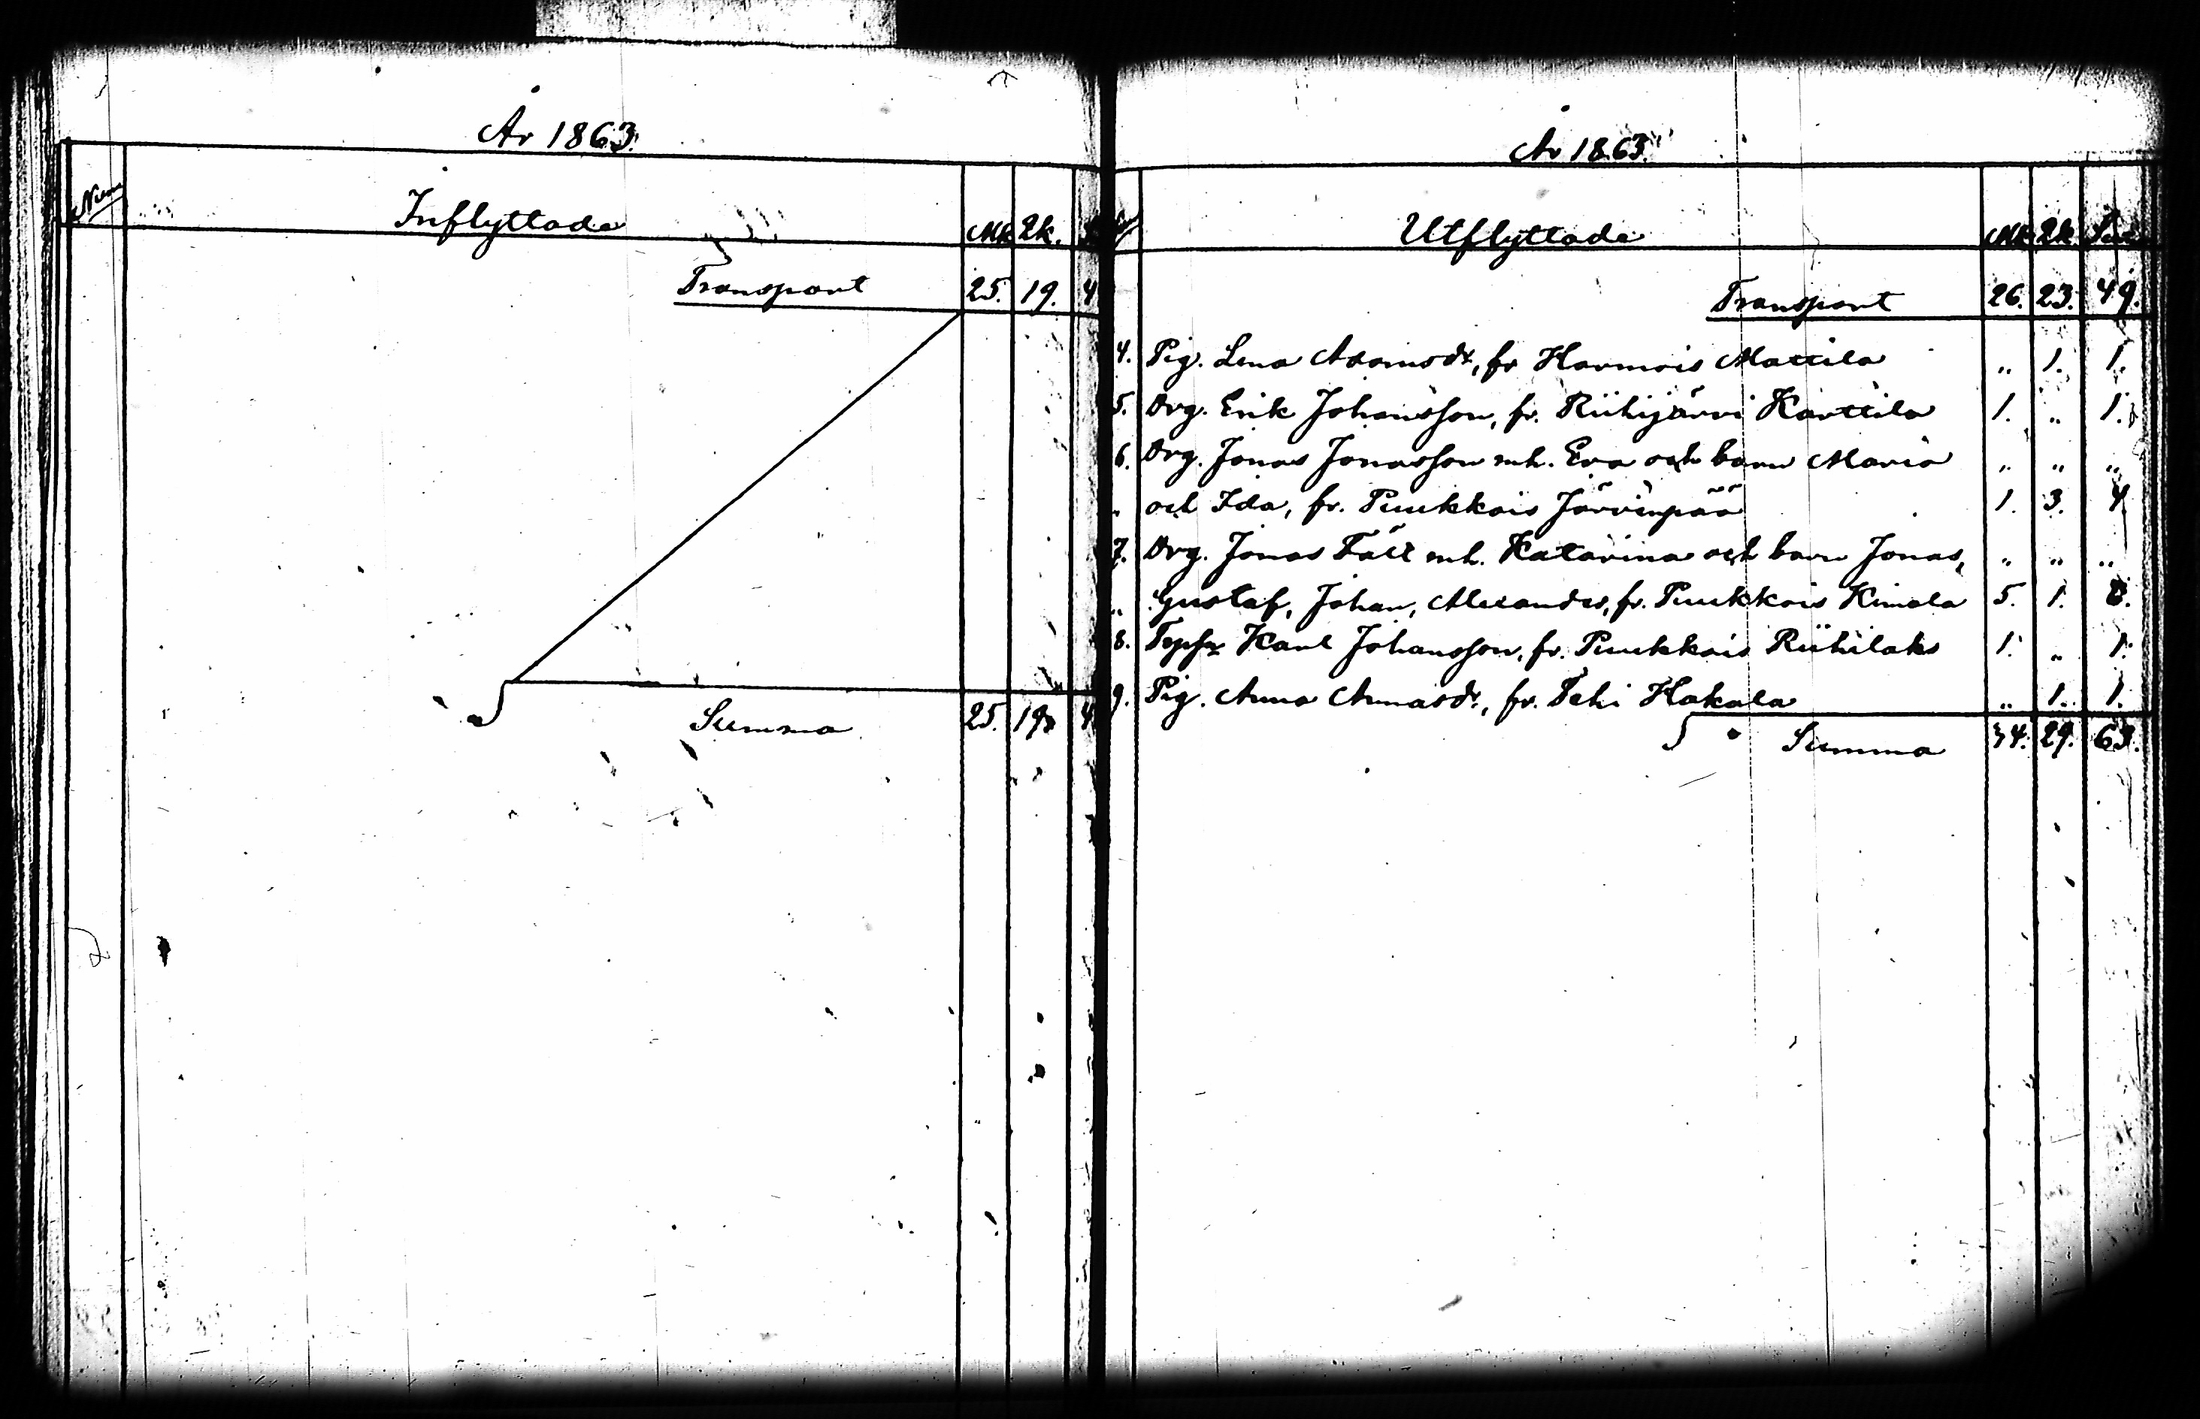 År 1863.
Num
Inflyttade Mk. Qk.
Transport 25. 19. 4
Summa 25. 19. 4
År 1863.
Utflyttade Mk. Qk.
Transport 26. 23. 49.
4. Pig. Lena Adamsdr, fr Harmois Mattila „ 1. 1.
5. Drg. Erik Johansson, fr. Riihijärvi Karttila 1. „ 1.
6. Drg. Jonas Jonasson mh. Eva och barn Maria „ „ „
„ och Ida, fr. Puukkois Järvenpää 1. 3. 4
7. Drg. Jonas Fält mh. Katarina och barn Jonas, „ „ „
„ Gustaf, Johan, Alexander, fr. Puukkois Kimola 5. 1. 6.
8. Karl Johansson, fr. Puukkois Riihilaks 1. „ 1.
9. Pig. Anna Annasdr, fr. Pehi Hakala „ 1. 1.
Summa 34. 29. 63.